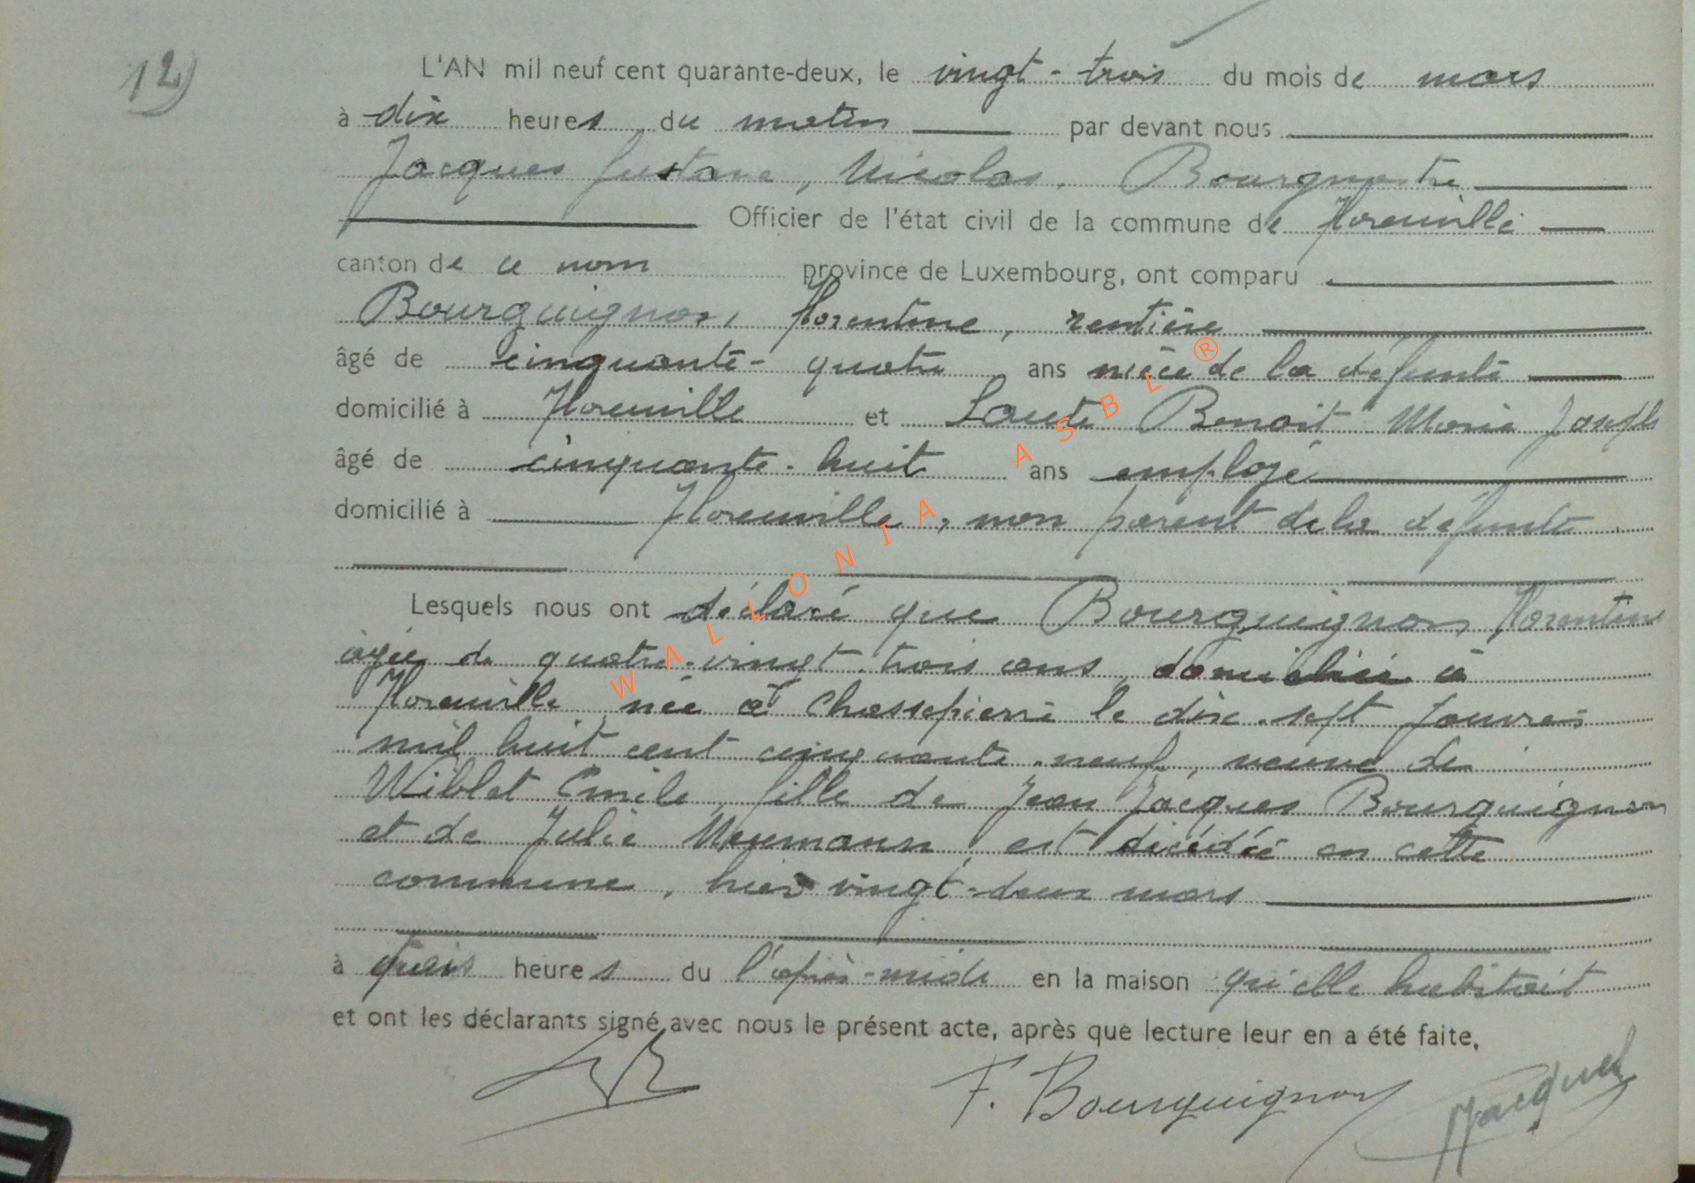 12)
L'AN mil neuf cent quarante-deux, le vingt-trois du mois de mars
à dix heures du matin par devant nous
Jacques Gustave, Nicolas, Bourgmestre
Officier de l'état civil de la commune de Florenville
canton de ce nom province de Luxembourg, ont comparu
Bourguignon, Florentine, rentière
âgé de cinquante-quatre ans nièce de la défunte
domicilié à Florenville et Benoit Marie Joseph
âgé de cinquante-huit ans employé
domicilié à Florenville, non parent de la défunte
Lesquels nous ont déclaré que Bourguignon Florentine
âgée de quatre-vingt-trois ans, domiciliée à
Florenville, née à Chassepierre le dix-sept janvier
mil huit cent cinquante-neuf, veuve de
Wiblet Emile, fille de Jean Jacques Bourguignon
et de Julie Neumann, est décédée en cette
commune, hier vingt-deux mars
à heures du l'après-midi en la maison qu'elle habitait
et ont les déclarants signé avec nous le présent acte, après que lecture leur en a été faite,
F. Bourguignon
NJacques
WALLONIA ASBL ®